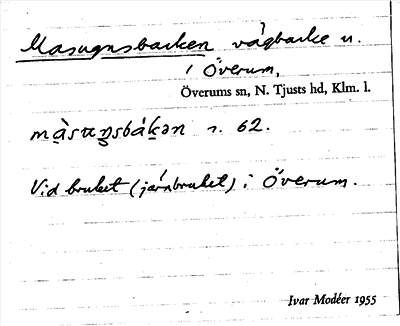 Masugnsbacken vägbacke n.
i Överum,
Överums sn, N. Tjusts hd, Klm. l.
s. 62.
Vid bruket (järnbruket) i Överum.
Ivar Modéer 1955